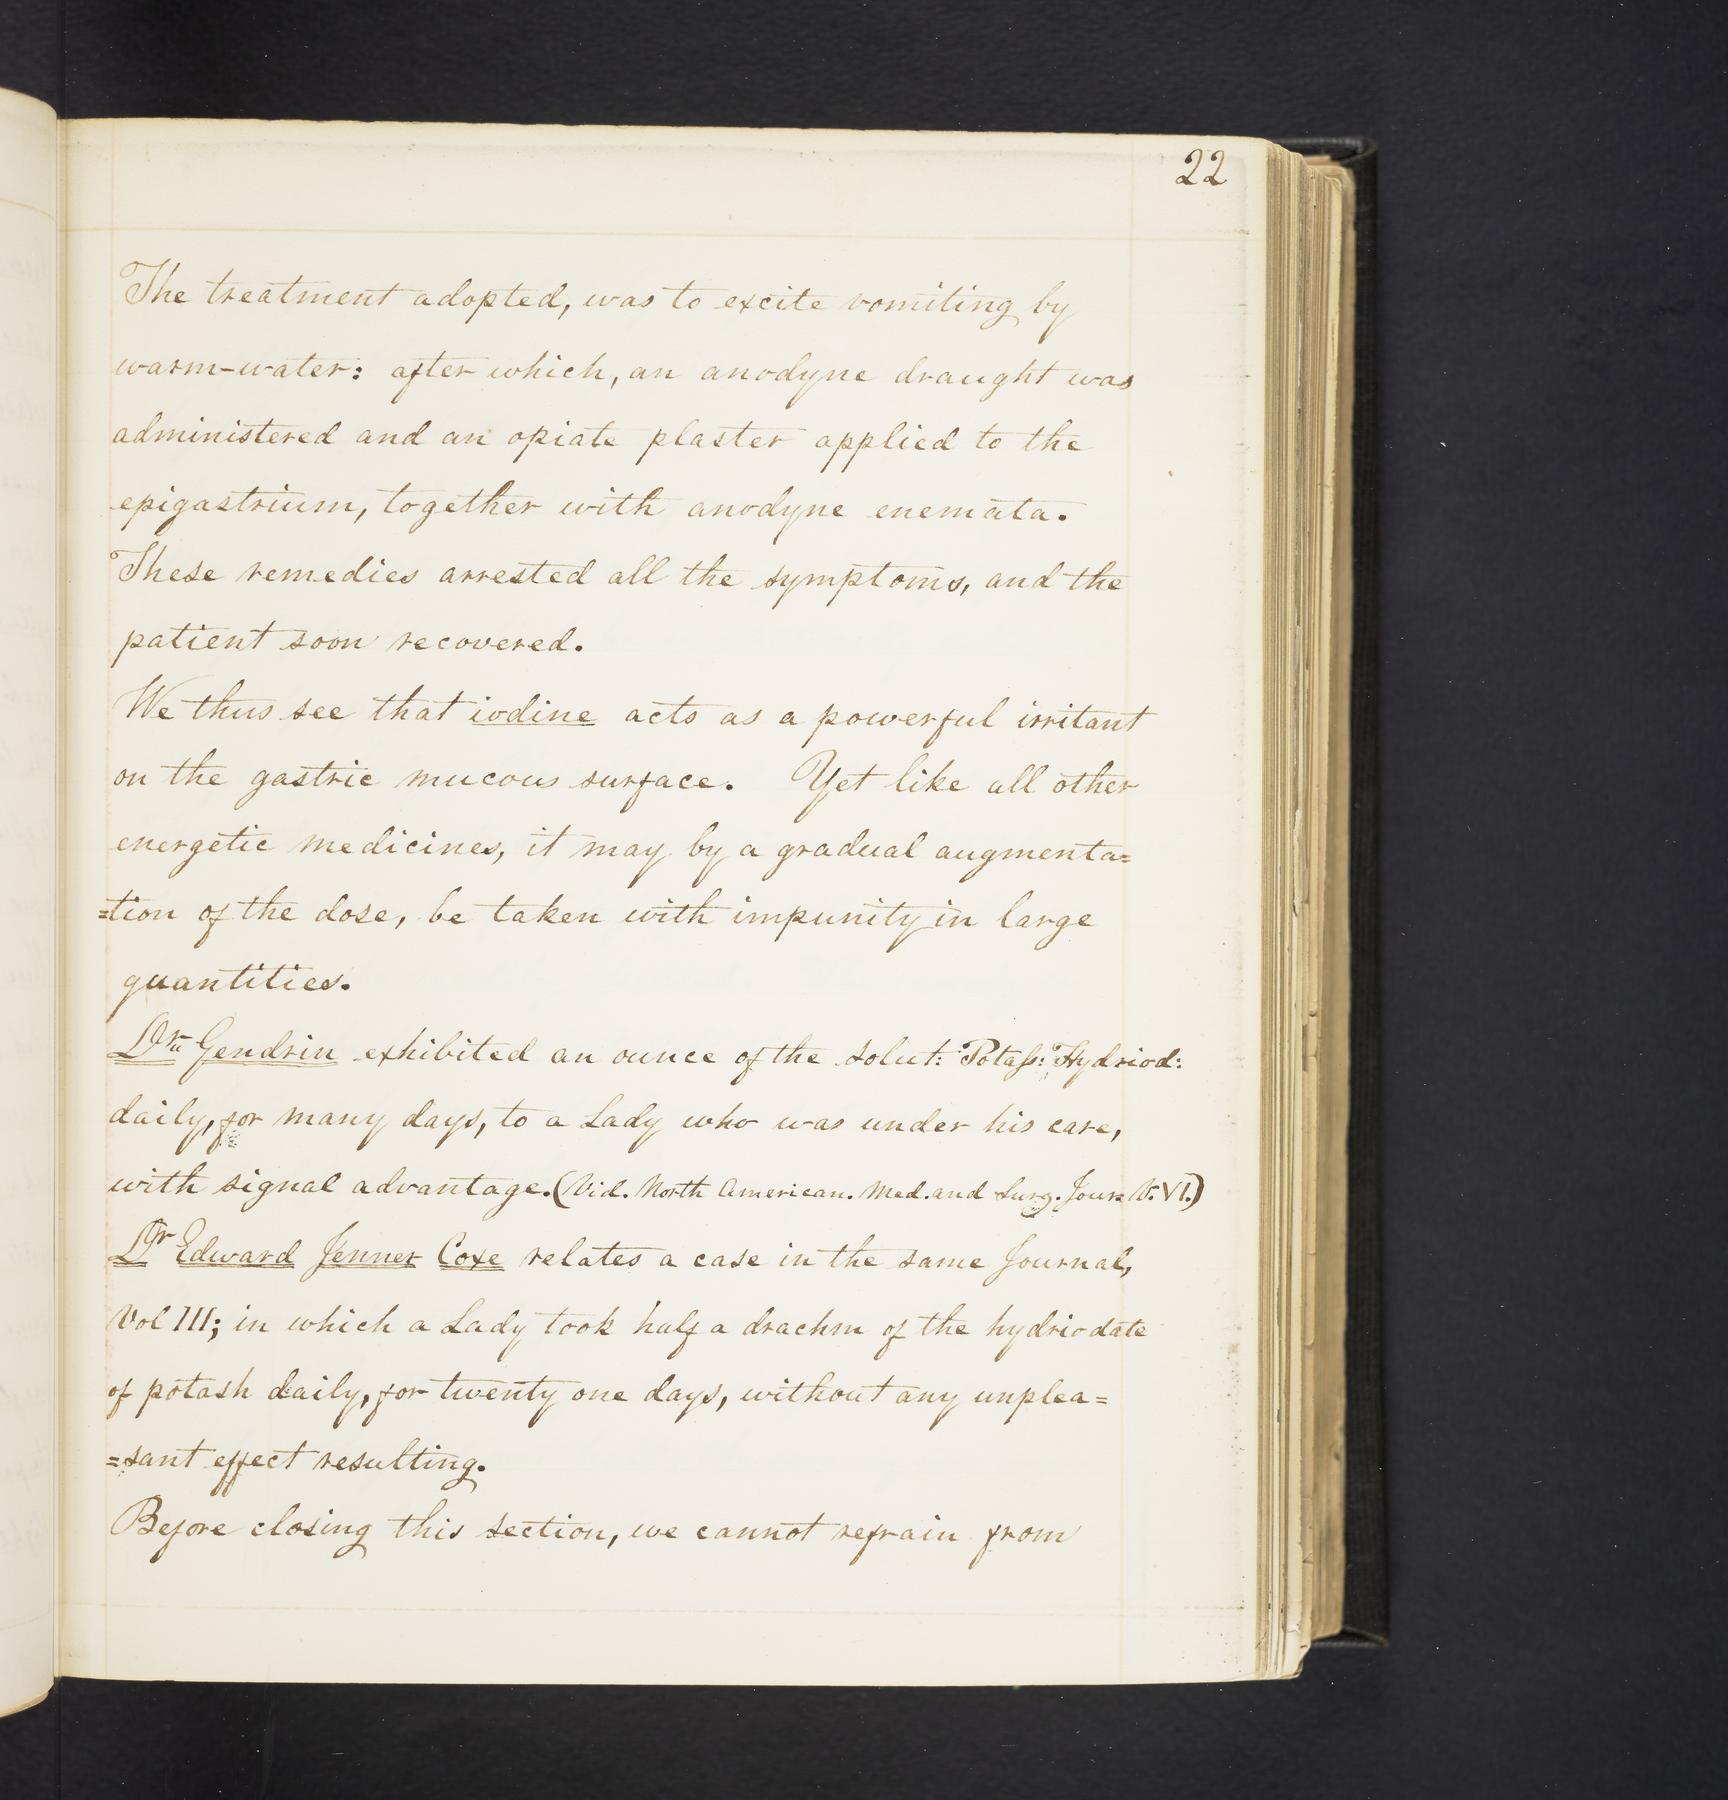 22
The treatment adopted, was to excite vomiting by
warm-water: after which, an anodyne draught was
administered and an opiate plaster applied to the
epigastrium, together with anodyne enemata.
These remedies arrested all the symptoms, and the
patient soon recovered.
We thus see that iodine acts as a powerful irritant
on the gastric mucous surface. Yet like all other
energetic medicines, it may by a gradual augmenta=
=tion of the dose, be taken with impunity in large
quantities.
Dr. Gendrin exhibited an ounce of the solut: Potass: Hydriod:
daily, for many days, to a Lady who was under his care,
with signal advantage. (Vid. North American. Med. and Surg. Jour. V. VI.)
Dr Edward Jenner Coxe relates a case in the same Journal,
Vol III; in which a Lady took half a drachm of the hydriodate
of potash daily, for twenty one days, without any unplea=
=sant effect resulting.
Before closing this section, we cannot refrain from